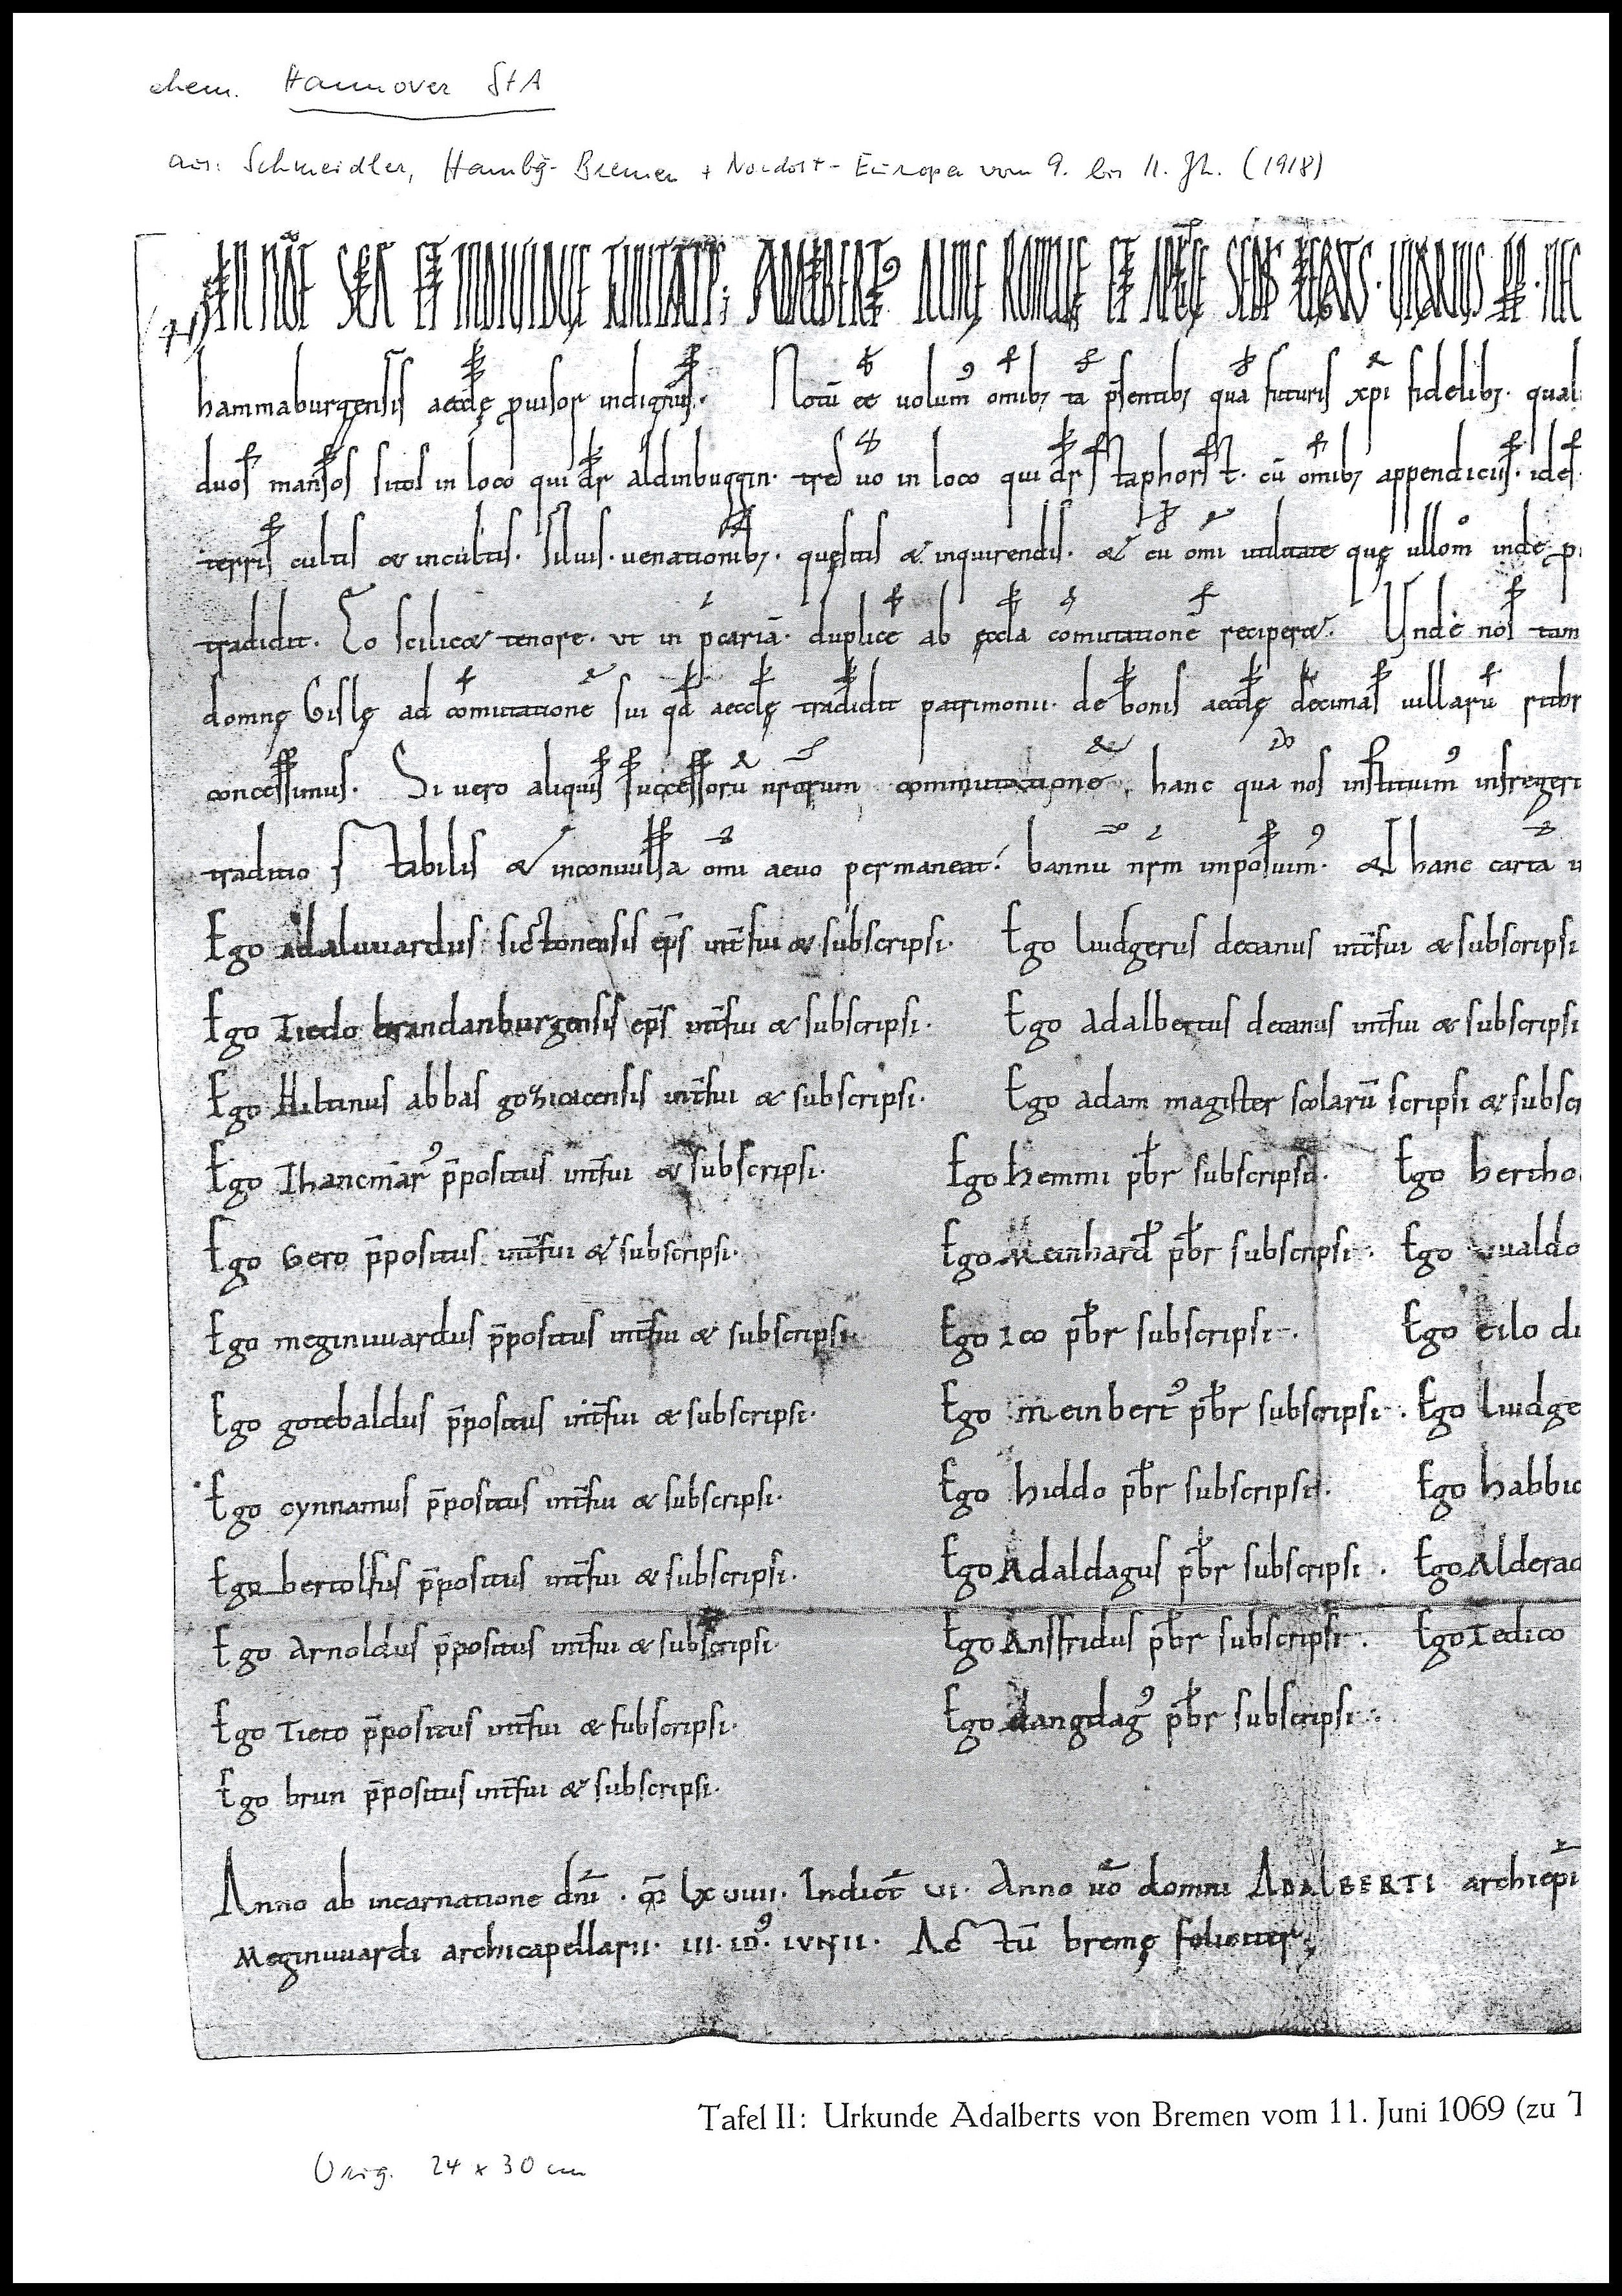 ehem. Hannover StA
aus: Schmeidler, Hambg-Bremen + Nordost-Europa vom 9. bis 11. Jh. (1918)
IN NOĒ SCĒ ET INDIVIDUE TRINITATIS; ADALBERTꝰ ALME ROMANE ET APĒCE SEDIS LEGATUS.
hammaburgensis aeccłę ꝓuisor indignus. Notū eē uolumꝰ omībꝫ tā p̄sentibꝫ quā futuris xp̄i fidelibꝫ. qual
duos mansos sitos in loco qui dr̄ aldinbuggin. tres uō in loco qui dr̄ staphorst. cū omībꝫ appendiciis. idest
terris cultis & incultis. siluis. uenationibꝫ. quęsitis & inquirendis. & cū omī utilitate quę ullom̊ inde p
tradidit. Eo scilicet tenore. ut in p̄cariā. duplicē ab ęccła cōmutationē reciperet. Unde nos tam
domnę Gislę ad cōmutationē sui qd̄ aecclę tradidit patrimonii. de bonis aecclę decimas uillarū subr
concessimus. Si uero aliquis successorū nr̄orum commutatione hanc quā nos instituimꝰ infregeri
traditio stabilis & inconuulsa omī aeuo permaneat. bannū nr̄m imposuimꝰ. Et hanc cartā
Ego adaluuardus sictonensis ep̄s int̄fui & subscripsi. Ego liudgerus decanus int̄fui & subscripsi
Ego Tiedo brandanburgensis ep̄s int̄fui & subscripsi. Ego adalbertus decanus int̄fui & subscripsi
Ego Hiltinus abbas gozicacensis int̄fui & subscripsi. Ego adam magister scolarū scripsi & subsc
Ego Thancmarꝰ p̄positus int̄fui & subscripsi. Ego hemmi pb̄r subscripsi. Ego bertho
Ego Gero p̄positus int̄fui & subscripsi. Ego Meinhard pb̄r subscripsi. Ego uualdo
Ego meginuuardus p̄positus int̄fui & subscripsi. Ego ico pb̄r subscripsi. Ego eilo di
Ego gotebaldus p̄positus int̄fui & subscripsi. Ego meinbertꝰ pb̄r subscripsi. Ego liudge
Ego cynnamus p̄positus int̄fui & subscripsi. Ego hiddo pb̄r subscripsi. Ego habbic
Ego bertolfus p̄positus int̄fui & subscripsi. Ego Adaldagus pb̄r subscripsi. Ego Alderac
Ego arnoldus p̄positus int̄fui & subscripsi. Ego Ansfridus pb̄r subscripsi. Ego Tedico
Ego Tieto p̄positus int̄fui & subscripsi. Ego dangdagꝰ pb̄r subscripsi.
Ego brun p̄positus int̄fui & subscripsi.
Anno ab incarnatione dn̄i. lxuiiii. Indict̄ ui. Anno uō domni ADALBERTI archiep̄i
Meginuuardi archicapellarii. III. IDꝰ. IVNII. Actū bremę feliciter;
Tafel II: Urkunde Adalberts von Bremen vom 11. Juni 1069 (zu T
Orig. 24 x 30 cm